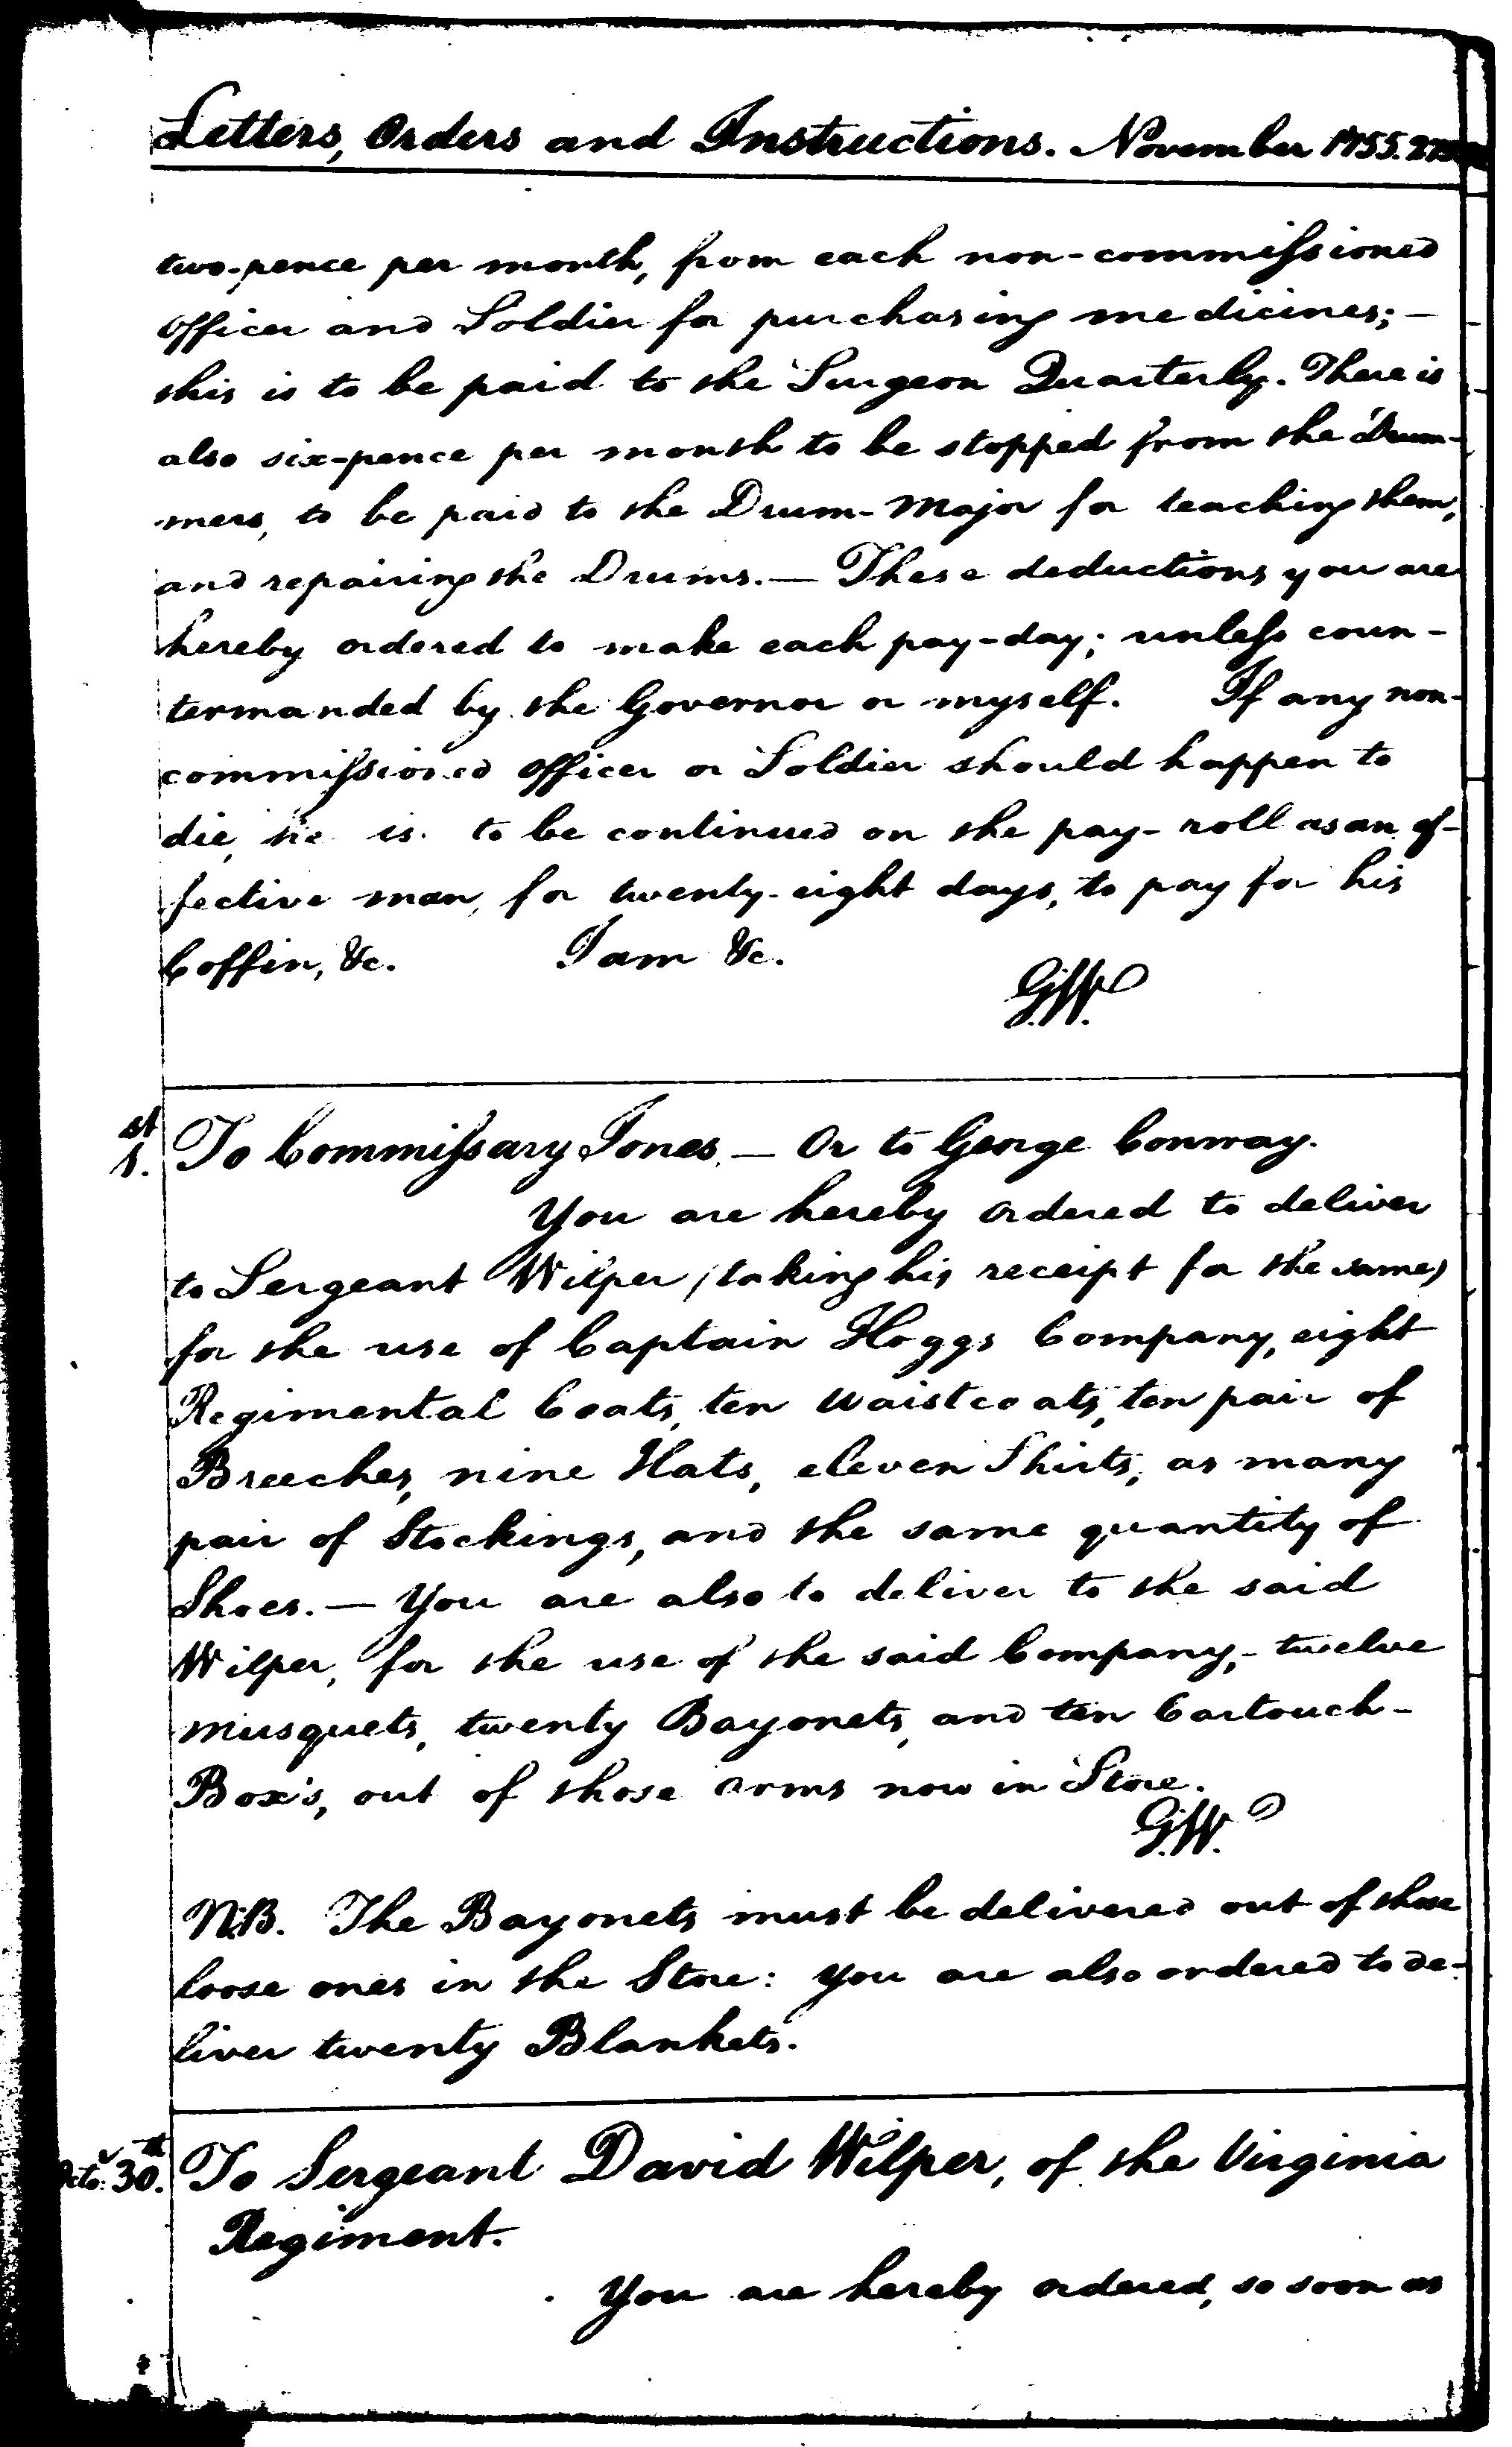 Letters, Orders and Instructions. November 1755.
two-pence per month, from each non-commissioned
Officer and Soldier for purchasing medicines; —
this is to be paid to the Surgeon Quarterly. There is
also six-pence per month to be stopped from the Drum-
mers, to be paid to the Drum-Major for teaching them,
and repairing the Drums. — These deductions you are
hereby ordered to make each pay-day; unless coun-
termanded by the Governor or myself. If any non-
commissioned Officer or Soldier should happen to
die, he is to be continued on the pay-roll as an ef-
fective man, for twenty-eight days, to pay for his
Coffin, &c. I am &c.
G.W.
1st. To Commissary Jones, — Or to George Conway.
You are hereby ordered to deliver
to Sergeant Wilper (taking his receipt for the same)
for the use of Captain Hoggs Company, eight
Regimental Coats, ten Waistcoats, ten pair of
Breeches, nine Hats, eleven Shirts, as many
pair of Stockings, and the same quantity of
Shoes. — You are also to deliver to the said
Wilper, for the use of the said Company, - twelve
Musquets, twenty Bayonets, and ten Cartouch-
Box's, out of those arms now in Store.
G.W.
N.B. The Bayonets must be delivered out of those
loose ones in the Store: you are also ordered to de-
liver twenty Blankets.
Octo. 30th. To Sergeant David Wilper, of the Virginia
Regiment.
You are hereby ordered, so soon as